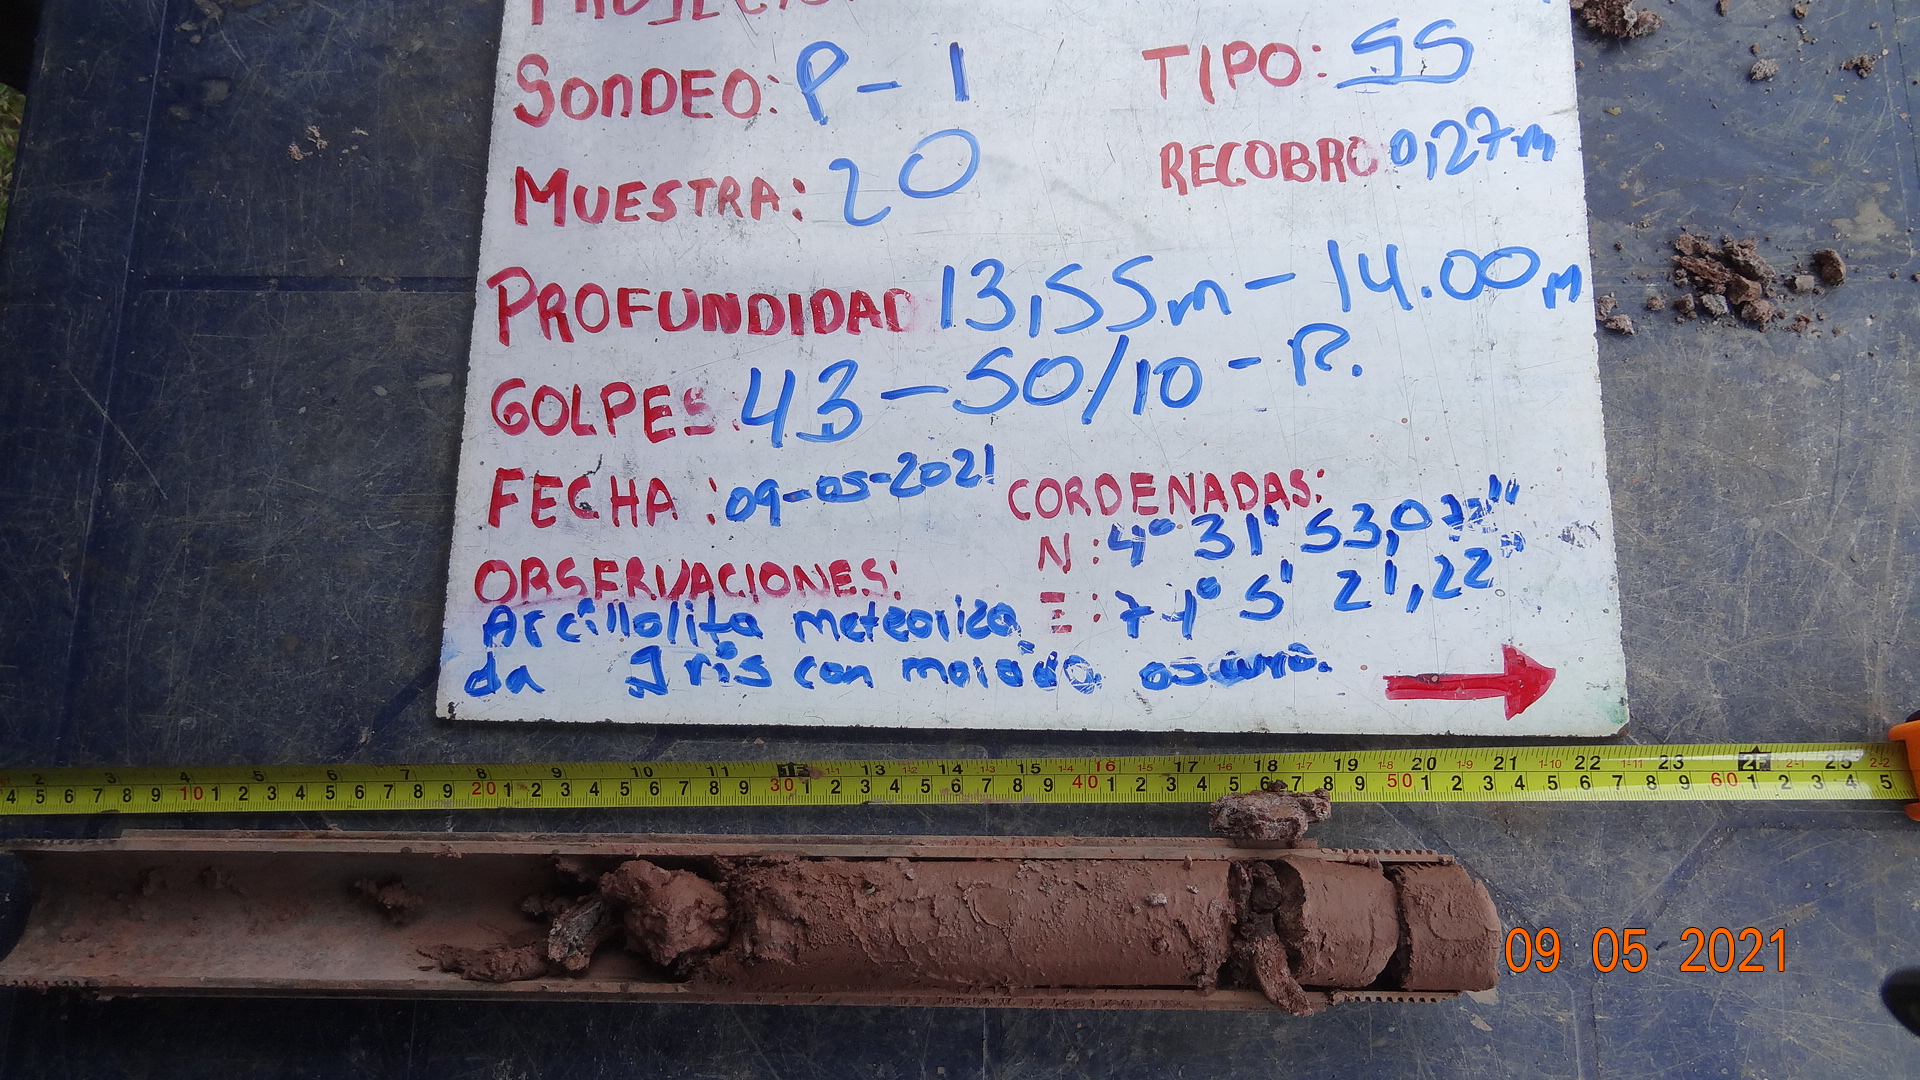 SONDEO: P-1 TIPO: SS
MUESTRA: 20 RECOBRO 0,27m
PROFUNDIDAD 13,55m - 14.00m
GOLPES: 43 - 50/10 - R.
FECHA: 09-05-2021 CORDENADAS:
N: 4° 31' 53,0
E: 74° 5' 21,22"
OBSERVACIONES:
Arcillolita meteoriza
da gris con morado oscuro.
2 3 4 5 6 7 8 9 10 11 13 14 15 16 17 18 19 20 21 22 23 25
4 5 6 7 8 9 10 1 2 3 4 5 6 7 8 9 20 1 2 3 4 5 6 7 8 9 30 1 2 3 4 5 6 7 8 9 40 1 2 3 4 5 6 7 8 9 50 1 2 3 4 5 6 7 8 9 60 1 2 3 4 5
09 05 2021